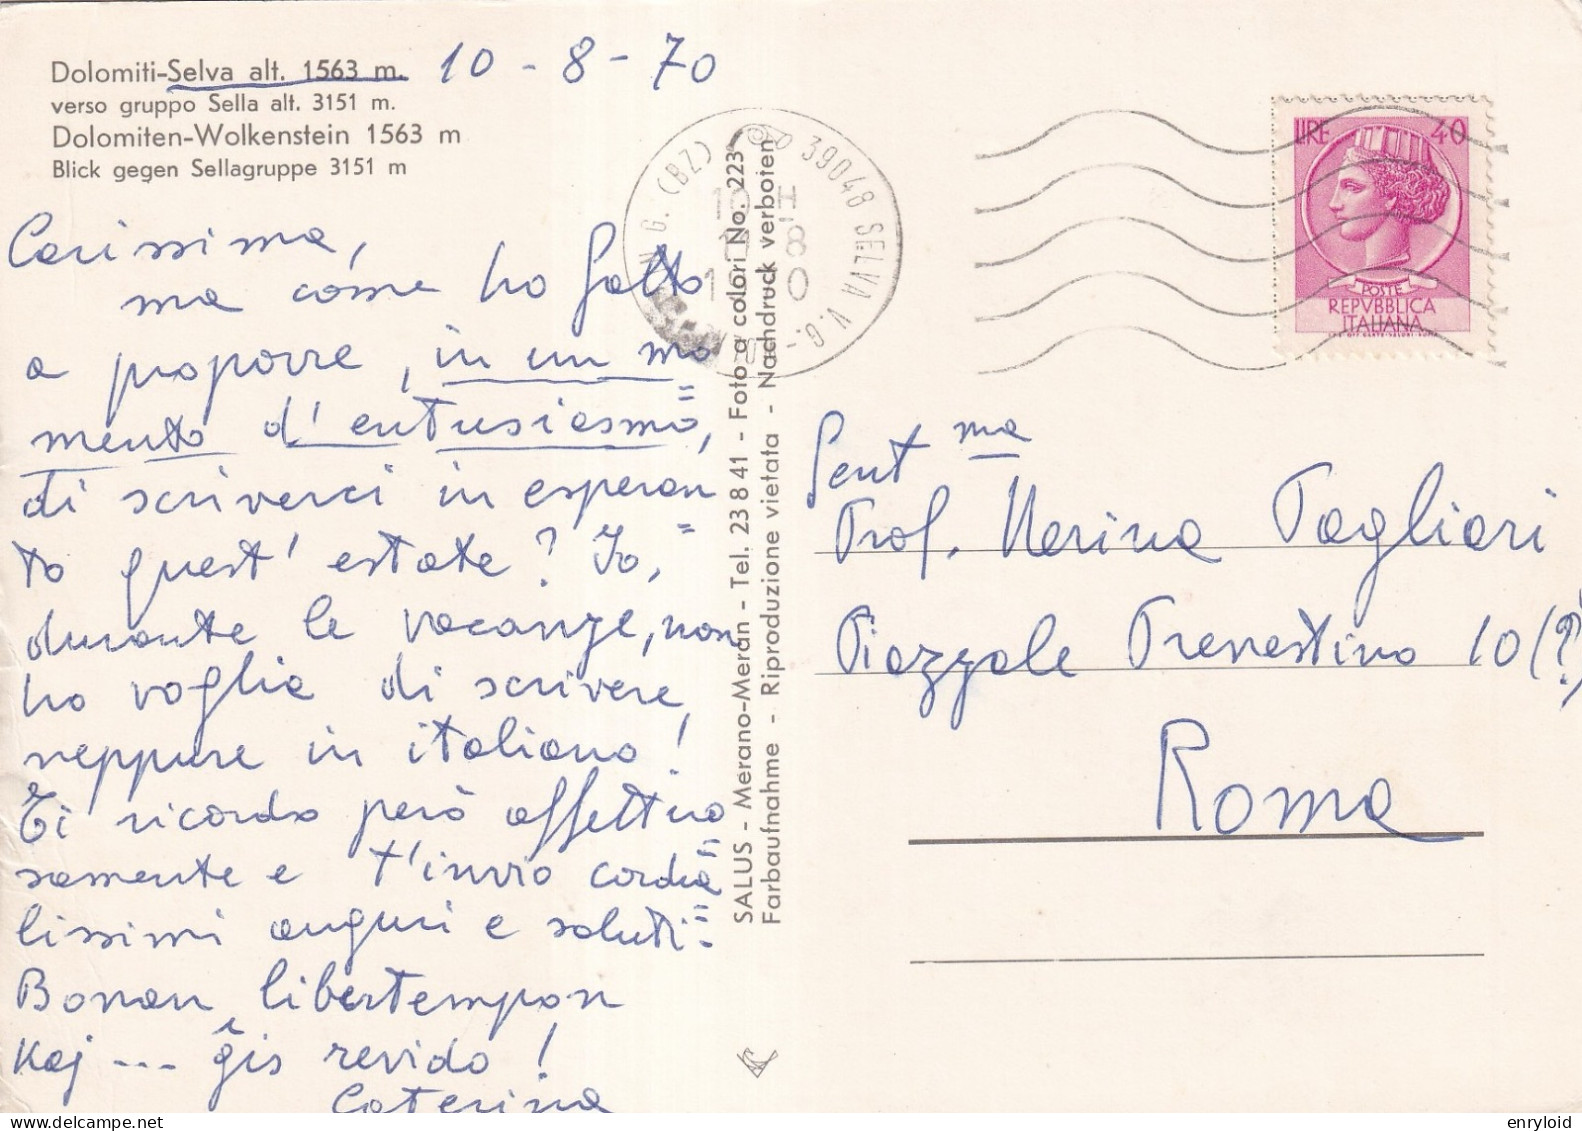 Dolomiti-Selva alt. 1563 m. 10 - 8 - 70
verso gruppo Sella alt. 3151 m.
Dolomiten-Wolkenstein 1563 m
Blick gegen Sellagruppe 3151 m
Carissima,
ma come ho fatto
a proporre, in un mo
mento d'entusiasmo,
di scriverci in esperan=
to quest'estate? Io,
durante le vacanze, non
ho voglia di scrivere,
neppure in italiano!
Ti ricordo però affettuo=
samente e t'invio cordia=
lissimi auguri e saluti.
Bonan libertempon
kaj --- ĝis revido!
Caterina
SALUS - Merano-Meran - Tel. 23 8 41 - Foto a colori No. 223
Farbaufnahme - Riproduzione vietata - Nachdruck verboten
39048 SELVA V.G.
G. (BZ)
LIRE 40
POSTE
REPVBBLICA
ITALIANA
Gent ma
Prof. Nerina Tagliari
Piazzale Prenestino 10 (?)
Roma
enryloid